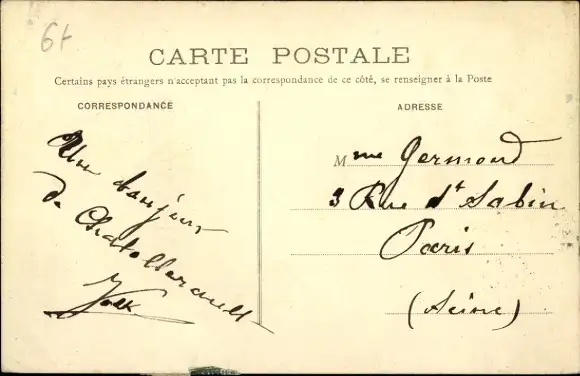 6f
CARTE POSTALE
Certains pays étrangers n'acceptant pas la correspondance de ce côté, se renseigner à la Poste
CORRESPONDANCE
Un bonjour
de Chatellerault
ADRESSE
Mme Germond
3 Rue dt Sabin
Paris
(Seine)